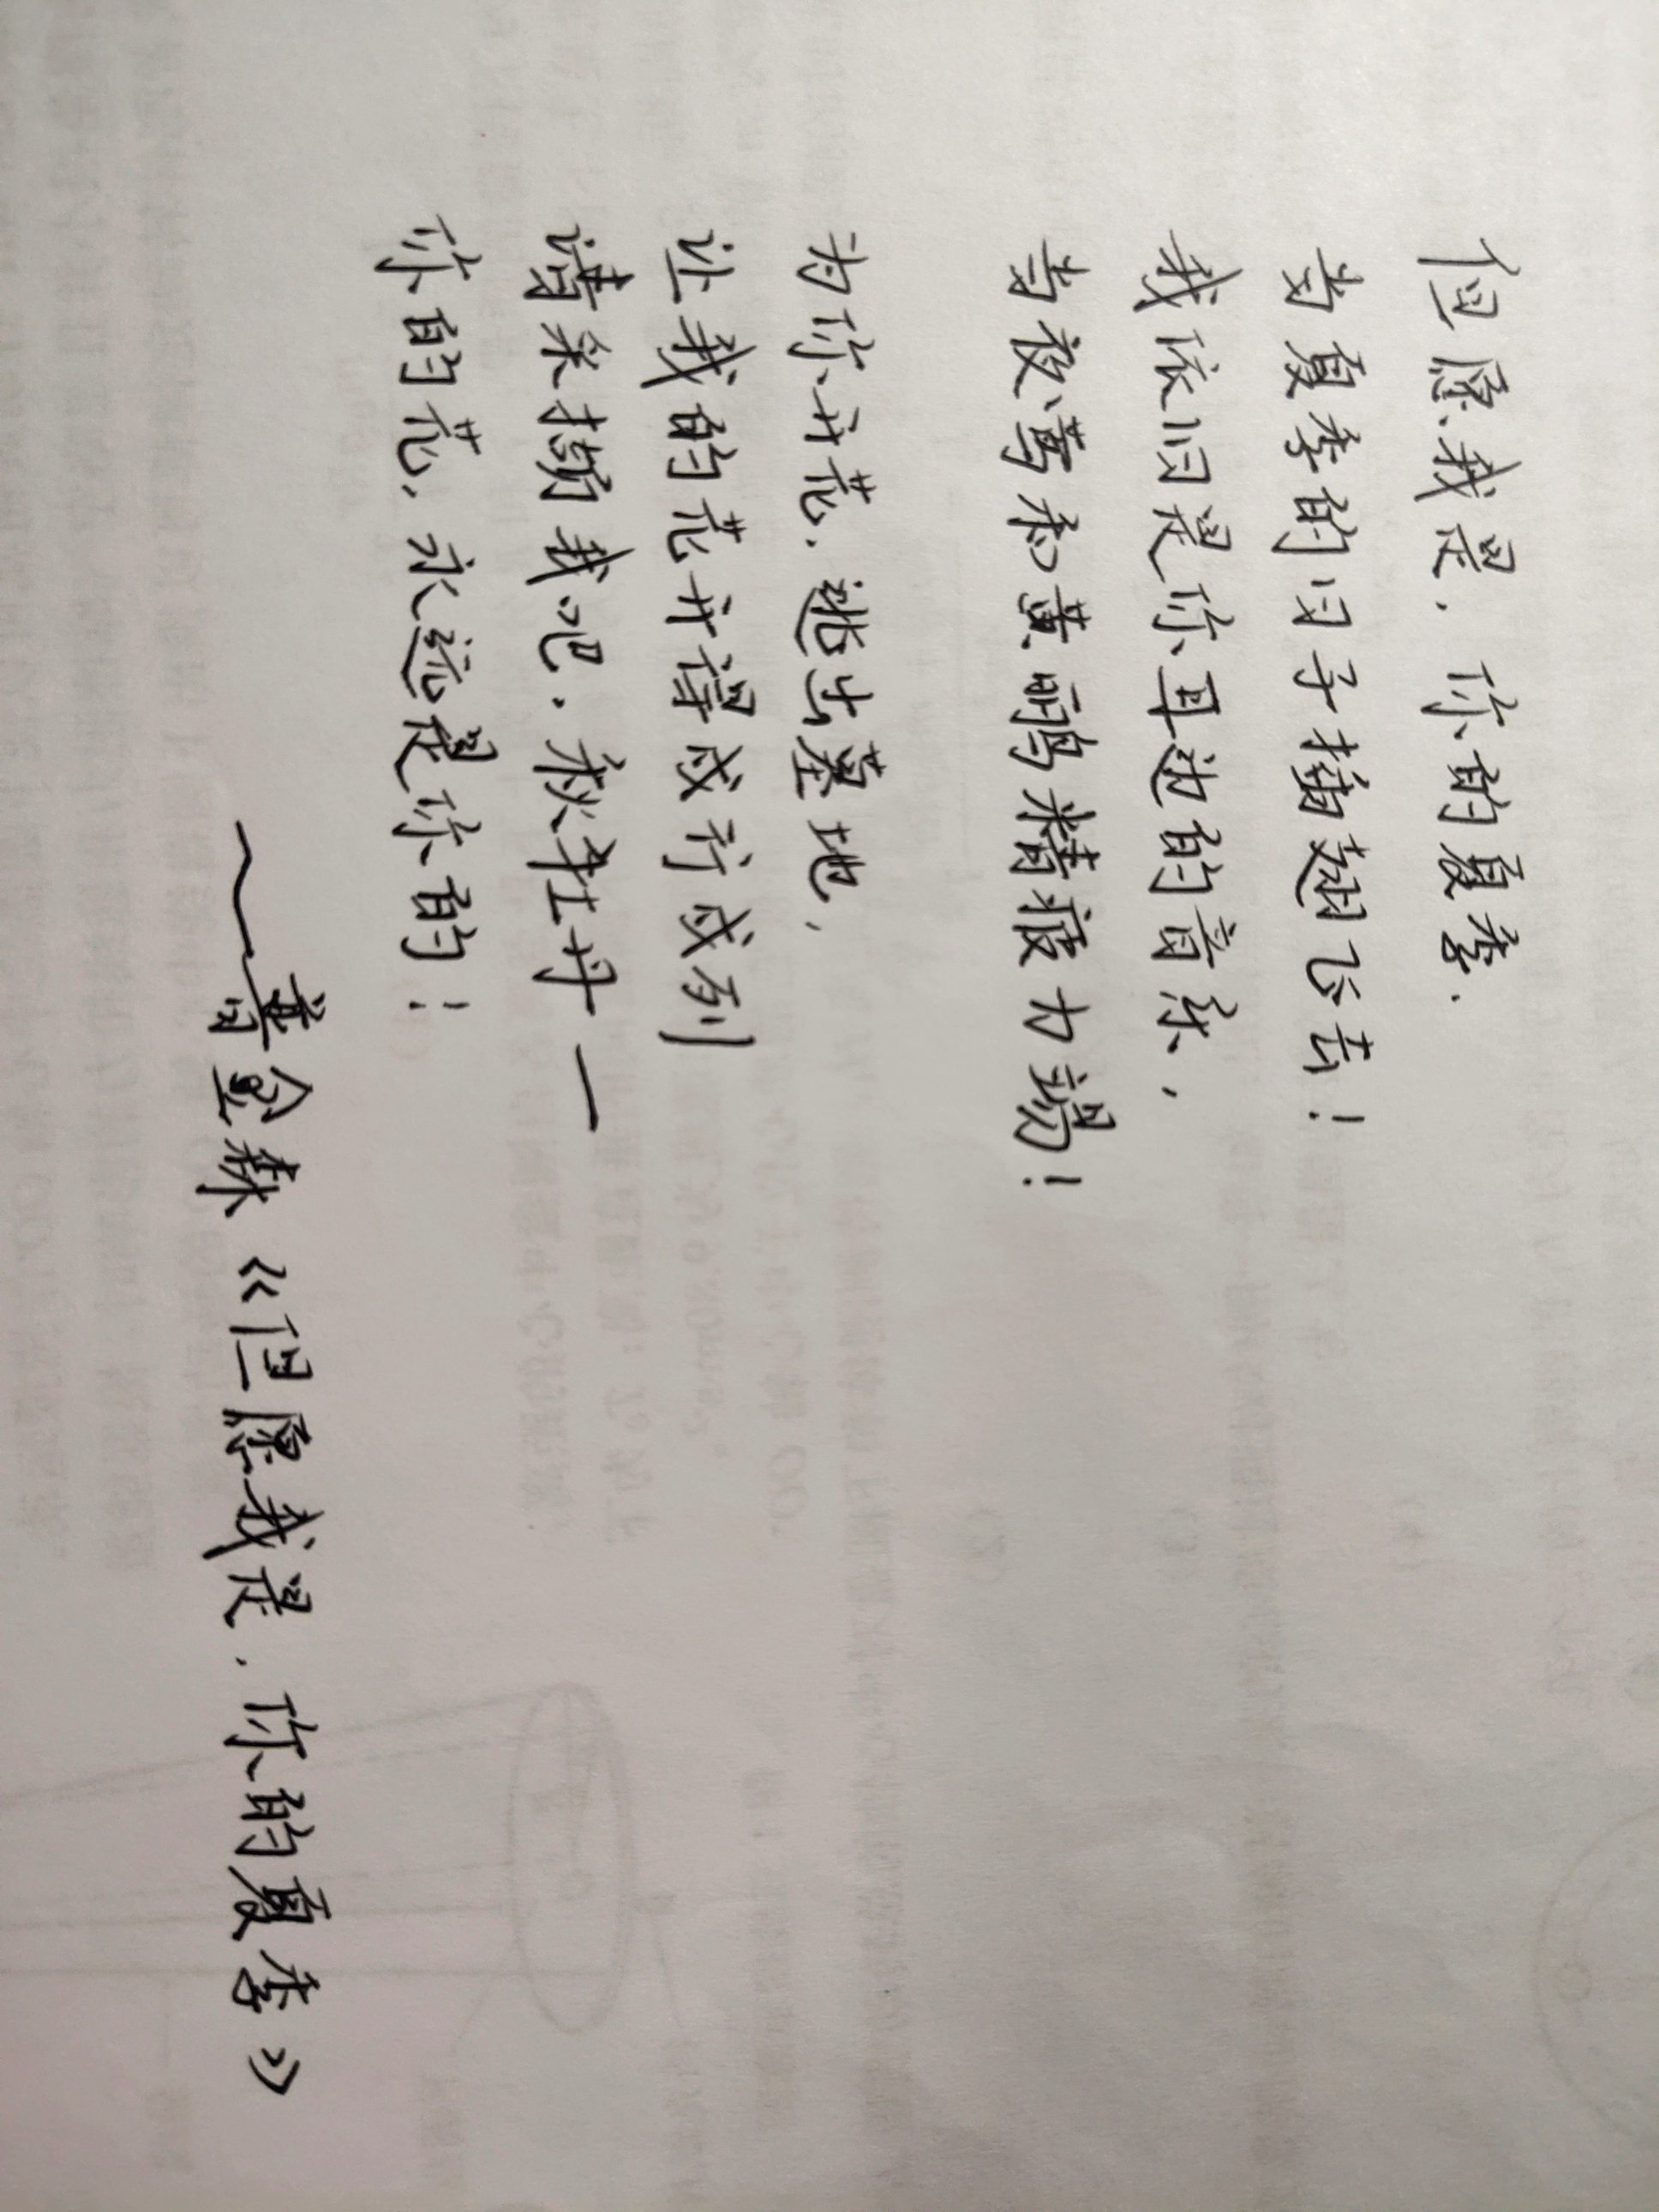 但愿我是，你的夏季，
当夏季的日子插翅飞去！
我依旧是你耳边的音乐，
当夜莺和黄鹂精疲力竭！
为你开花，逃出墓地，
让我的花开得成行成列
请采撷我吧，秋牡丹—
你的花，永远是你的！
——普金森《但愿我是，你的夏季》